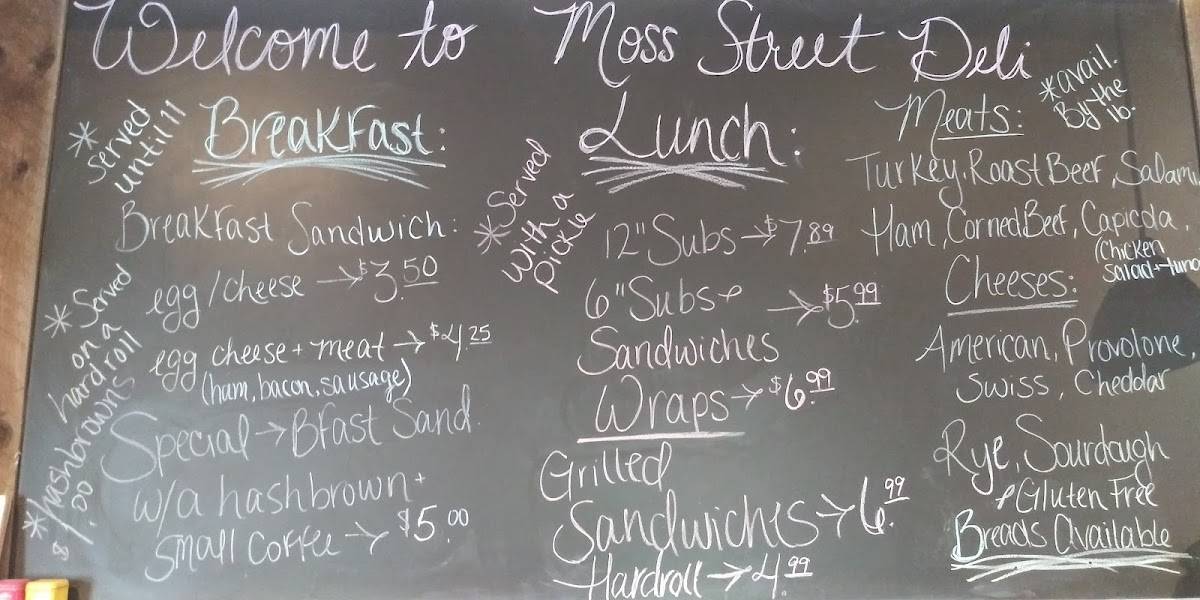 Welcome to Moss Street Deli
* Served
until 11
Breakfast:
Breakfast Sandwich:
egg/cheese → $3.50
egg cheese + meat → $4.25
(ham, bacon, sausage)
* Served
on a
hardroll
Special → Bfast Sand.
w/a hashbrown +
small coffee → $5.00
* hashbrowns
$1.00
Lunch:
* Served
with a
pickle
12" Subs → $7.89
6" Subs &
Sandwiches → $5.99
Wraps → $6.99
Grilled
Sandwiches → 6.99
Hardroll → 4.99
Meats:
* avail.
By the
lb.
Turkey, Roast Beef, Salami,
Ham, Corned Beef, Capicola,
(Chicken
Salad + tuna
Cheeses:
American, Provolone,
Swiss, Cheddar
Rye, Sourdough
& Gluten Free
Breads Available